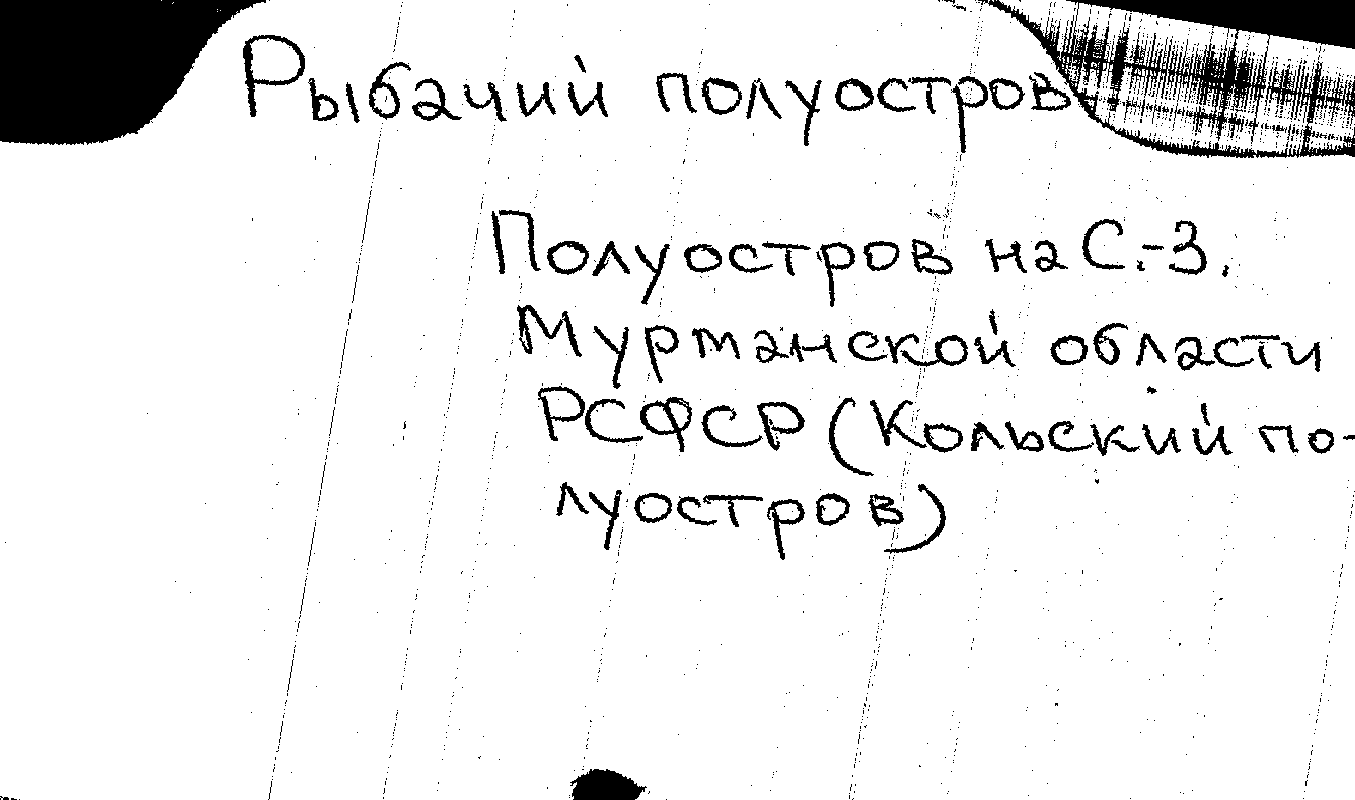 Рыбачий полуостров
Полуостров на С.-З.
Мурманской области
РСФСР (Кольский по-
луостров)